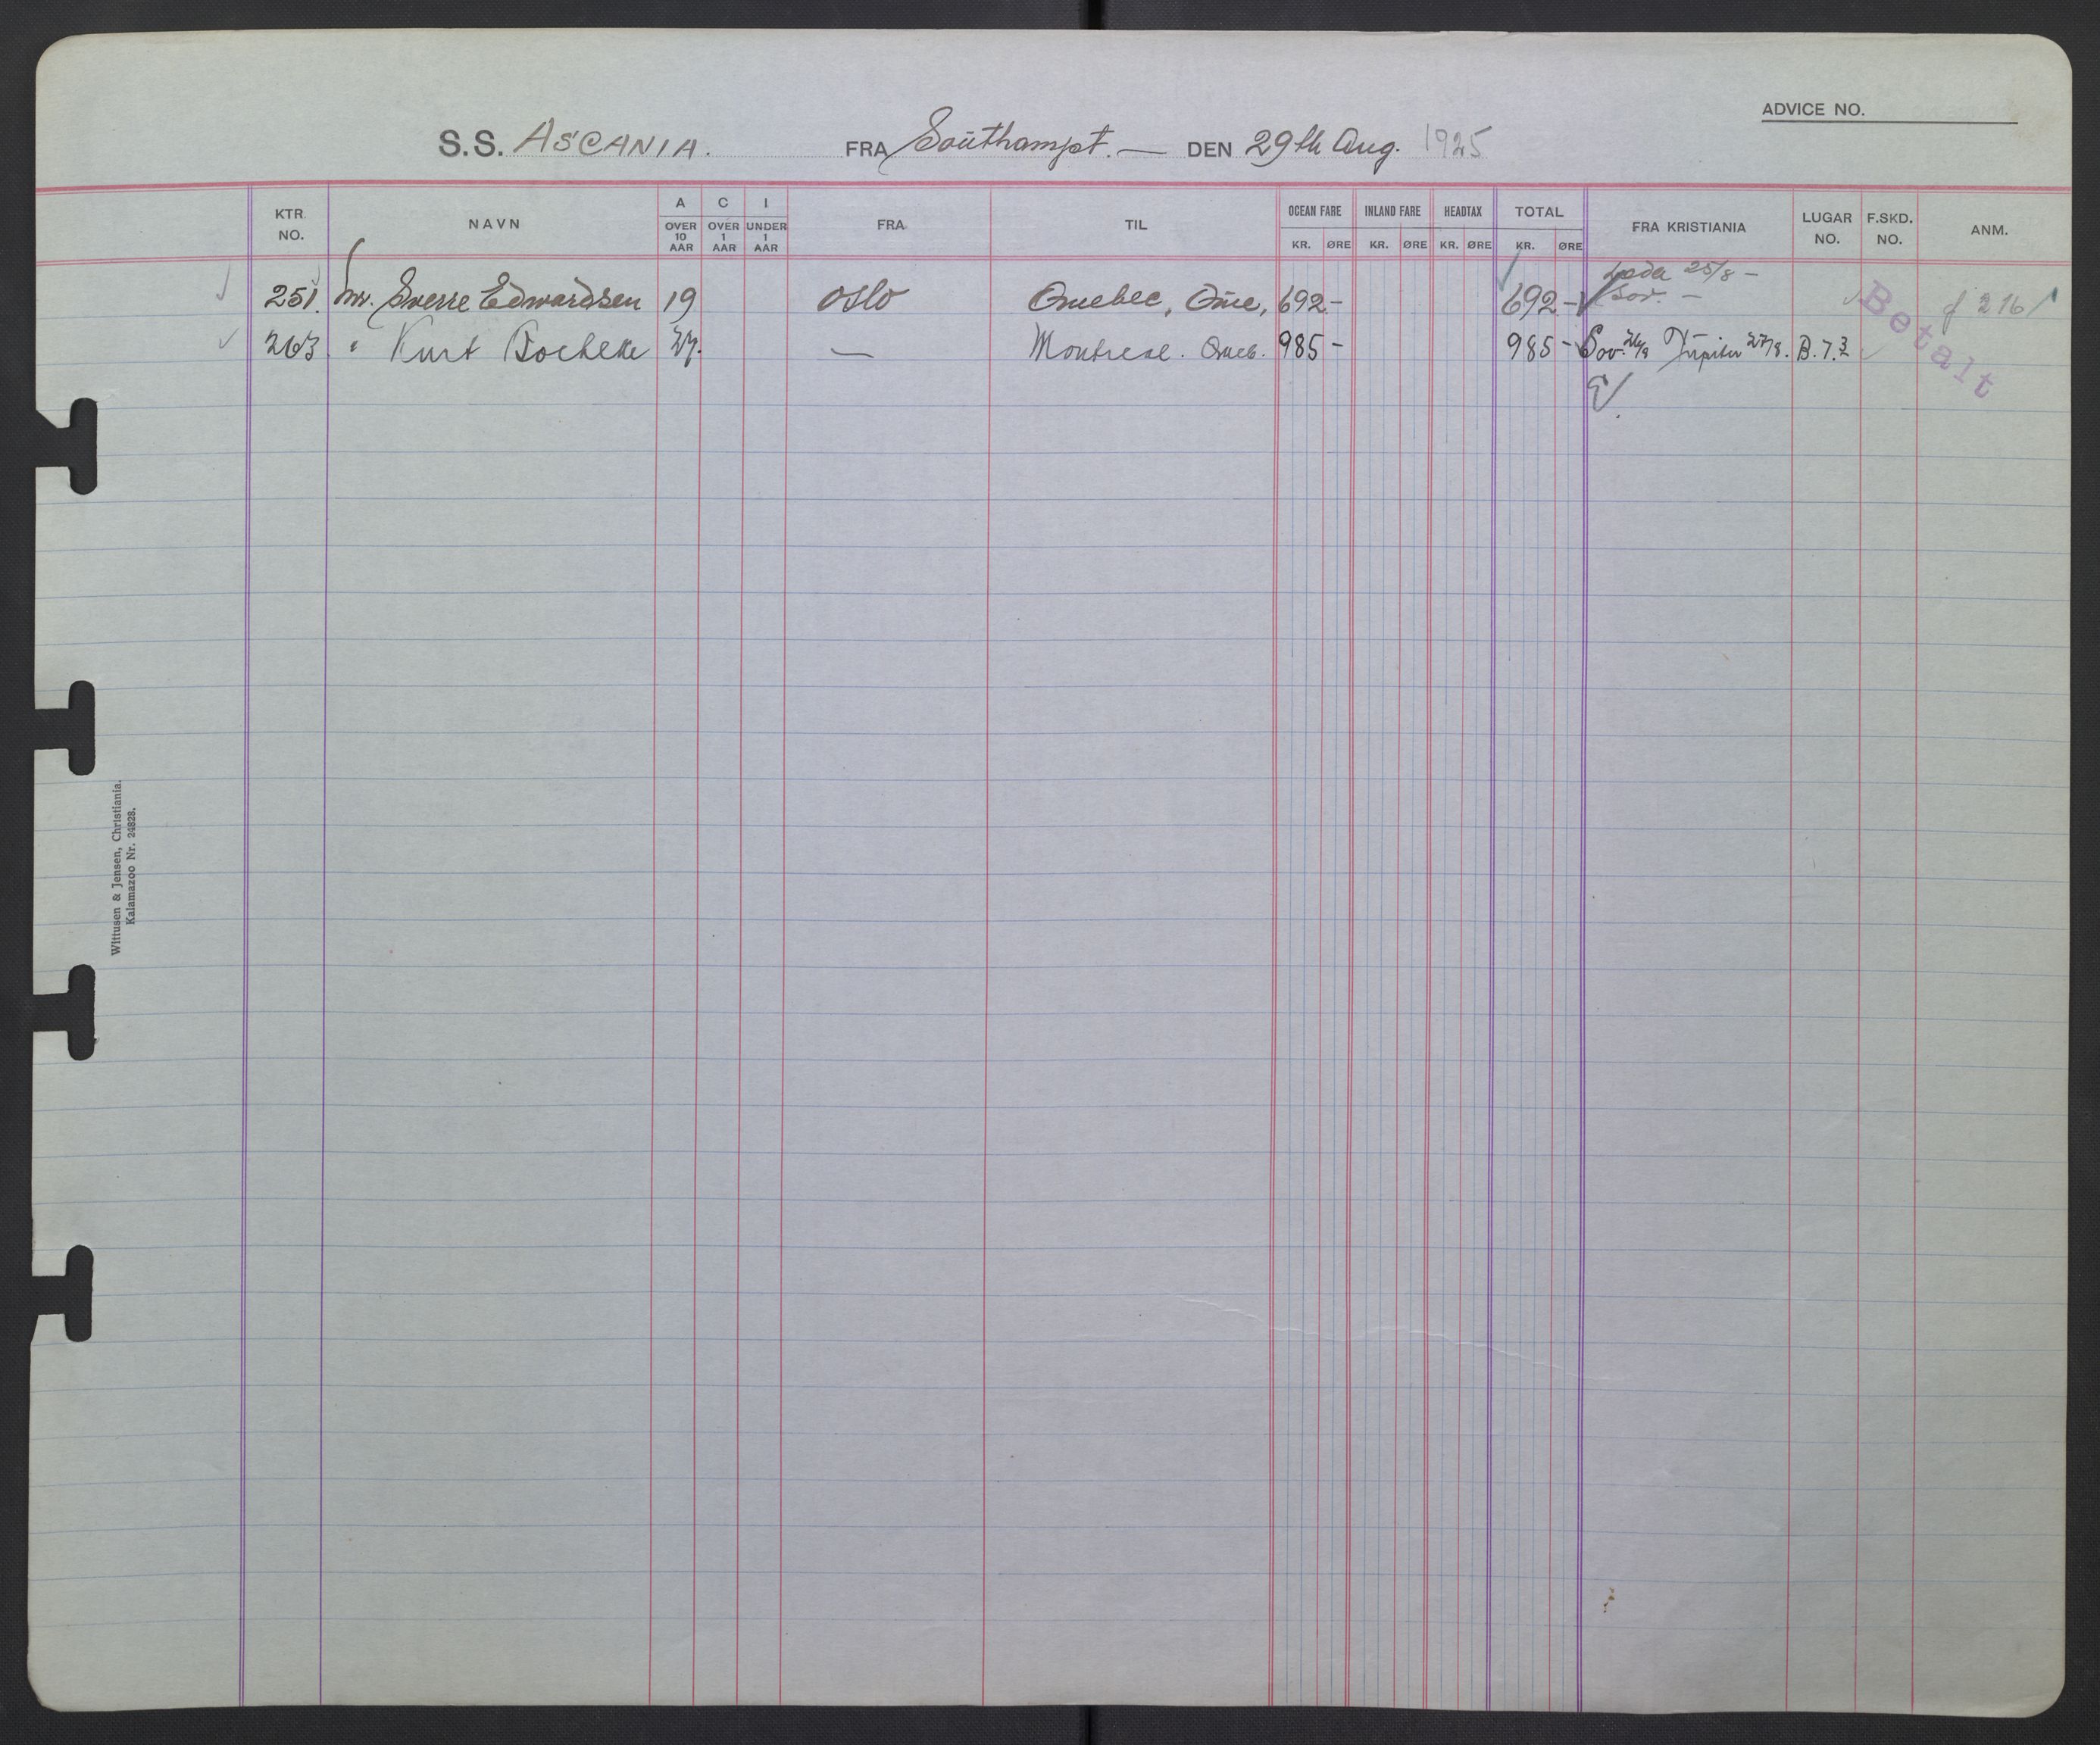 ADVICE NO.
S.S. ASCANIA. FRA Southampt. — DEN 29th Aug. 1925
KTR. NO. NAVN A OVER 10 AAR C OVER 1 AAR I UNDER 1 AAR FRA TIL OCEAN FARE KR. ØRE INLAND FARE KR. ØRE HEADTAX KR. ØRE TOTAL KR. ØRE FRA KRISTIANIA LUGAR NO. F.SKD. NO. ANM.
25/8 -
251. Mr. Sverre Edwardsen 19 Oslo Quebec, Que, 692.- 692.- Sov. - f 216/
263 " Kurt 27. — Montreal. Queb. 985- 985- Sov. 26/8 Jupiter 27/8. B.7.3
Betalt
Wittusen & Jensen, Christiania.
Kalamazoo Nr. 24828.